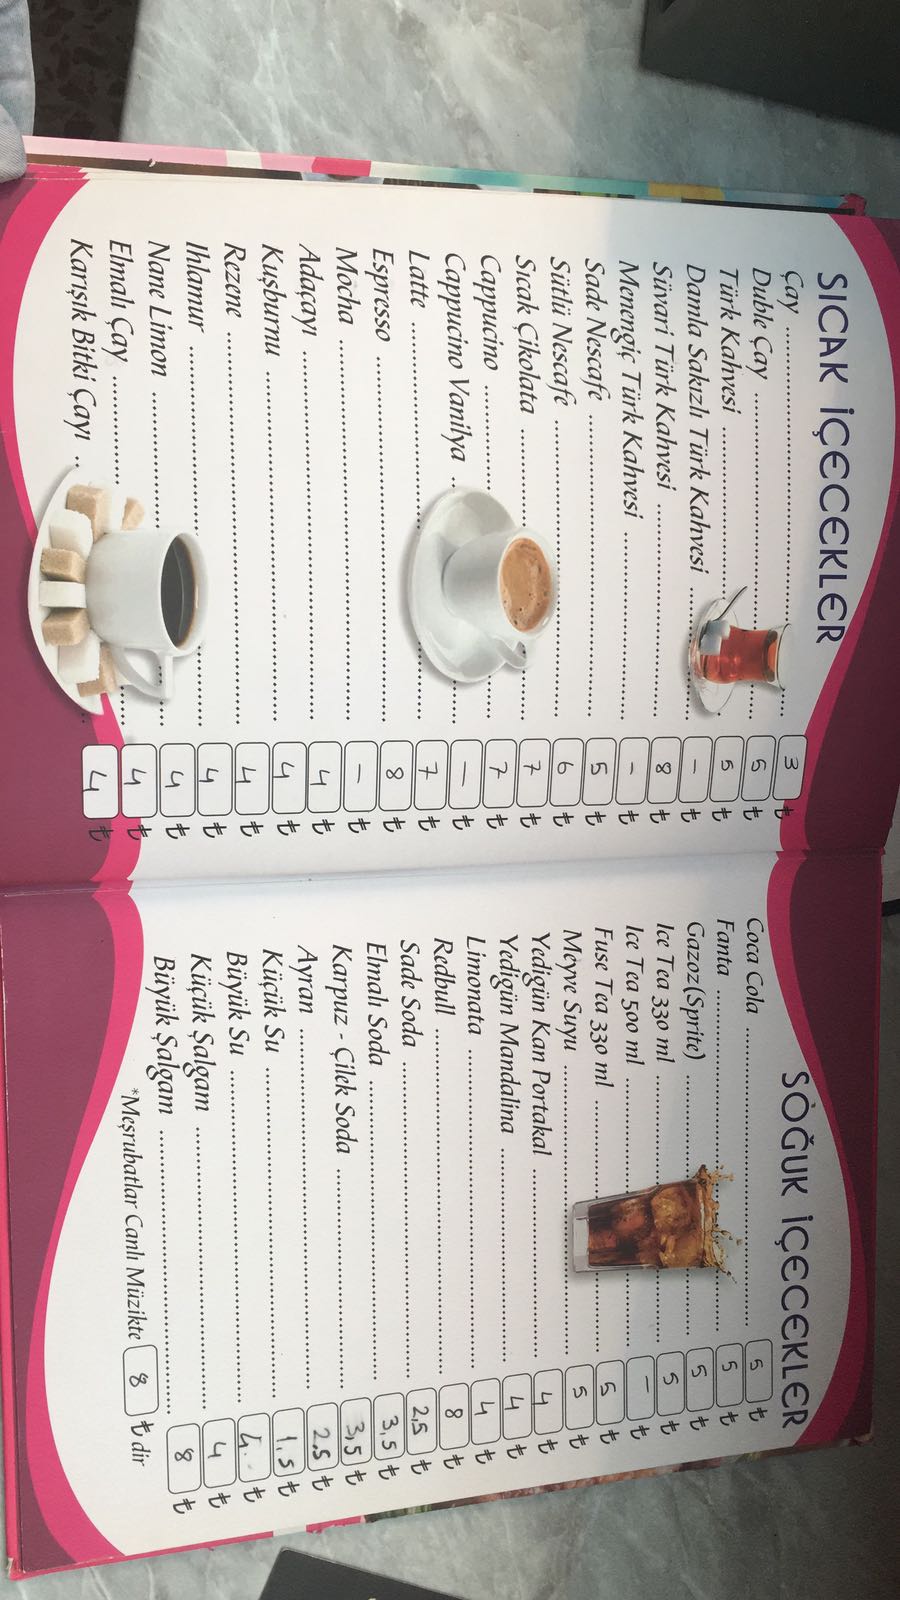 SICAK İÇECEKLER
Çay 3 ₺
Duble Çay 5 ₺
Türk Kahvesi 5 ₺
Damla Sakızlı Türk Kahvesi — ₺
Süvari Türk Kahvesi 8 ₺
Menengiç Türk Kahvesi - ₺
Sade Nescafe 5 ₺
Sütlü Nescafe 6 ₺
Sıcak Çikolata 7 ₺
Cappucino 7 ₺
Cappucino Vanilya — ₺
Latte 7 ₺
Espresso 8 ₺
Mocha — ₺
Adaçayı 4 ₺
Kuşburnu 4 ₺
Rezene 4 ₺
Ihlamur 4 ₺
Nane Limon 4 ₺
Elmalı Çay 4 ₺
Karışık Bitki Çayı 4 ₺
SOĞUK İÇECEKLER
Coca Cola 5 ₺
Fanta 5 ₺
Gazoz(Sprite) 5 ₺
Ice Tea 330 ml 5 ₺
Ice Tea 500 ml — ₺
Fuse Tea 330 ml 5 ₺
Meyve Suyu 5 ₺
Yedigün Kan Portakal 4 ₺
Yedigün Mandalina 4 ₺
Limonata 4 ₺
Redbull 8 ₺
Sade Soda 2,5 ₺
Elmalı Soda 3,5 ₺
Karpuz - Çilek Soda 3,5 ₺
Ayran 2.5 ₺
Küçük Su 1.5 ₺
Büyük Su 4 ₺
Küçük Şalgam 4 ₺
Büyük Şalgam 8 ₺
*Meşrubatlar Canlı Müzikte 8 ₺ dir